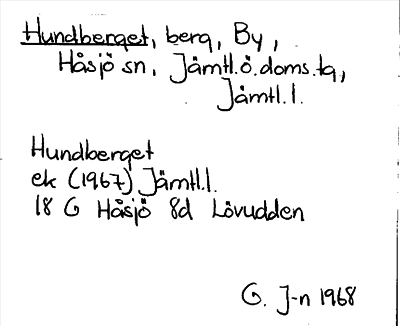 Hundberget, berg, By,
Håsjö sn, Jämtl.ö.doms.tg,
Jämtl.l.
Hundberget
ek (1967) Jämtl.l.
18 G Håsjö 8d Lövudden
G. J-n 1968